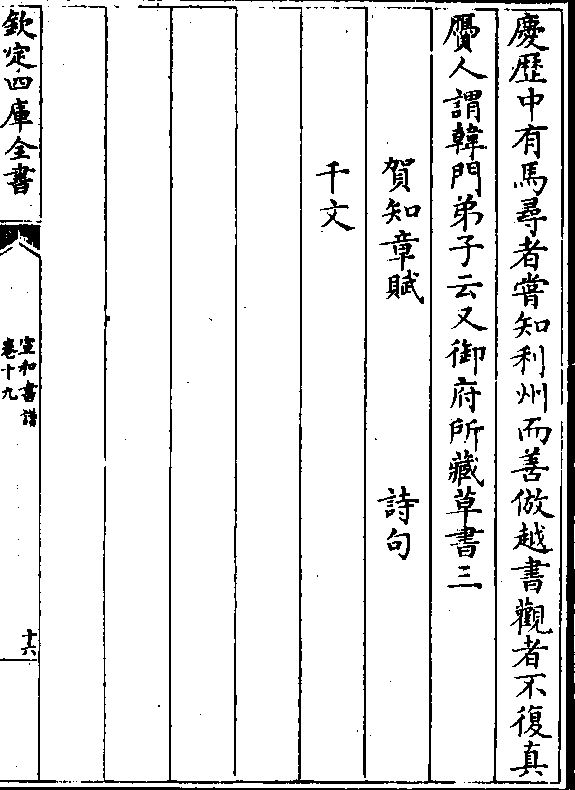 慶歴中有馬尋者嘗知利州而善倣越書觀者不復真
贗人謂韓門弟子云又御府所藏草書三
賀知章賦　詩句
千文
欽定四庫全書
宣和書譜
卷十九
十六